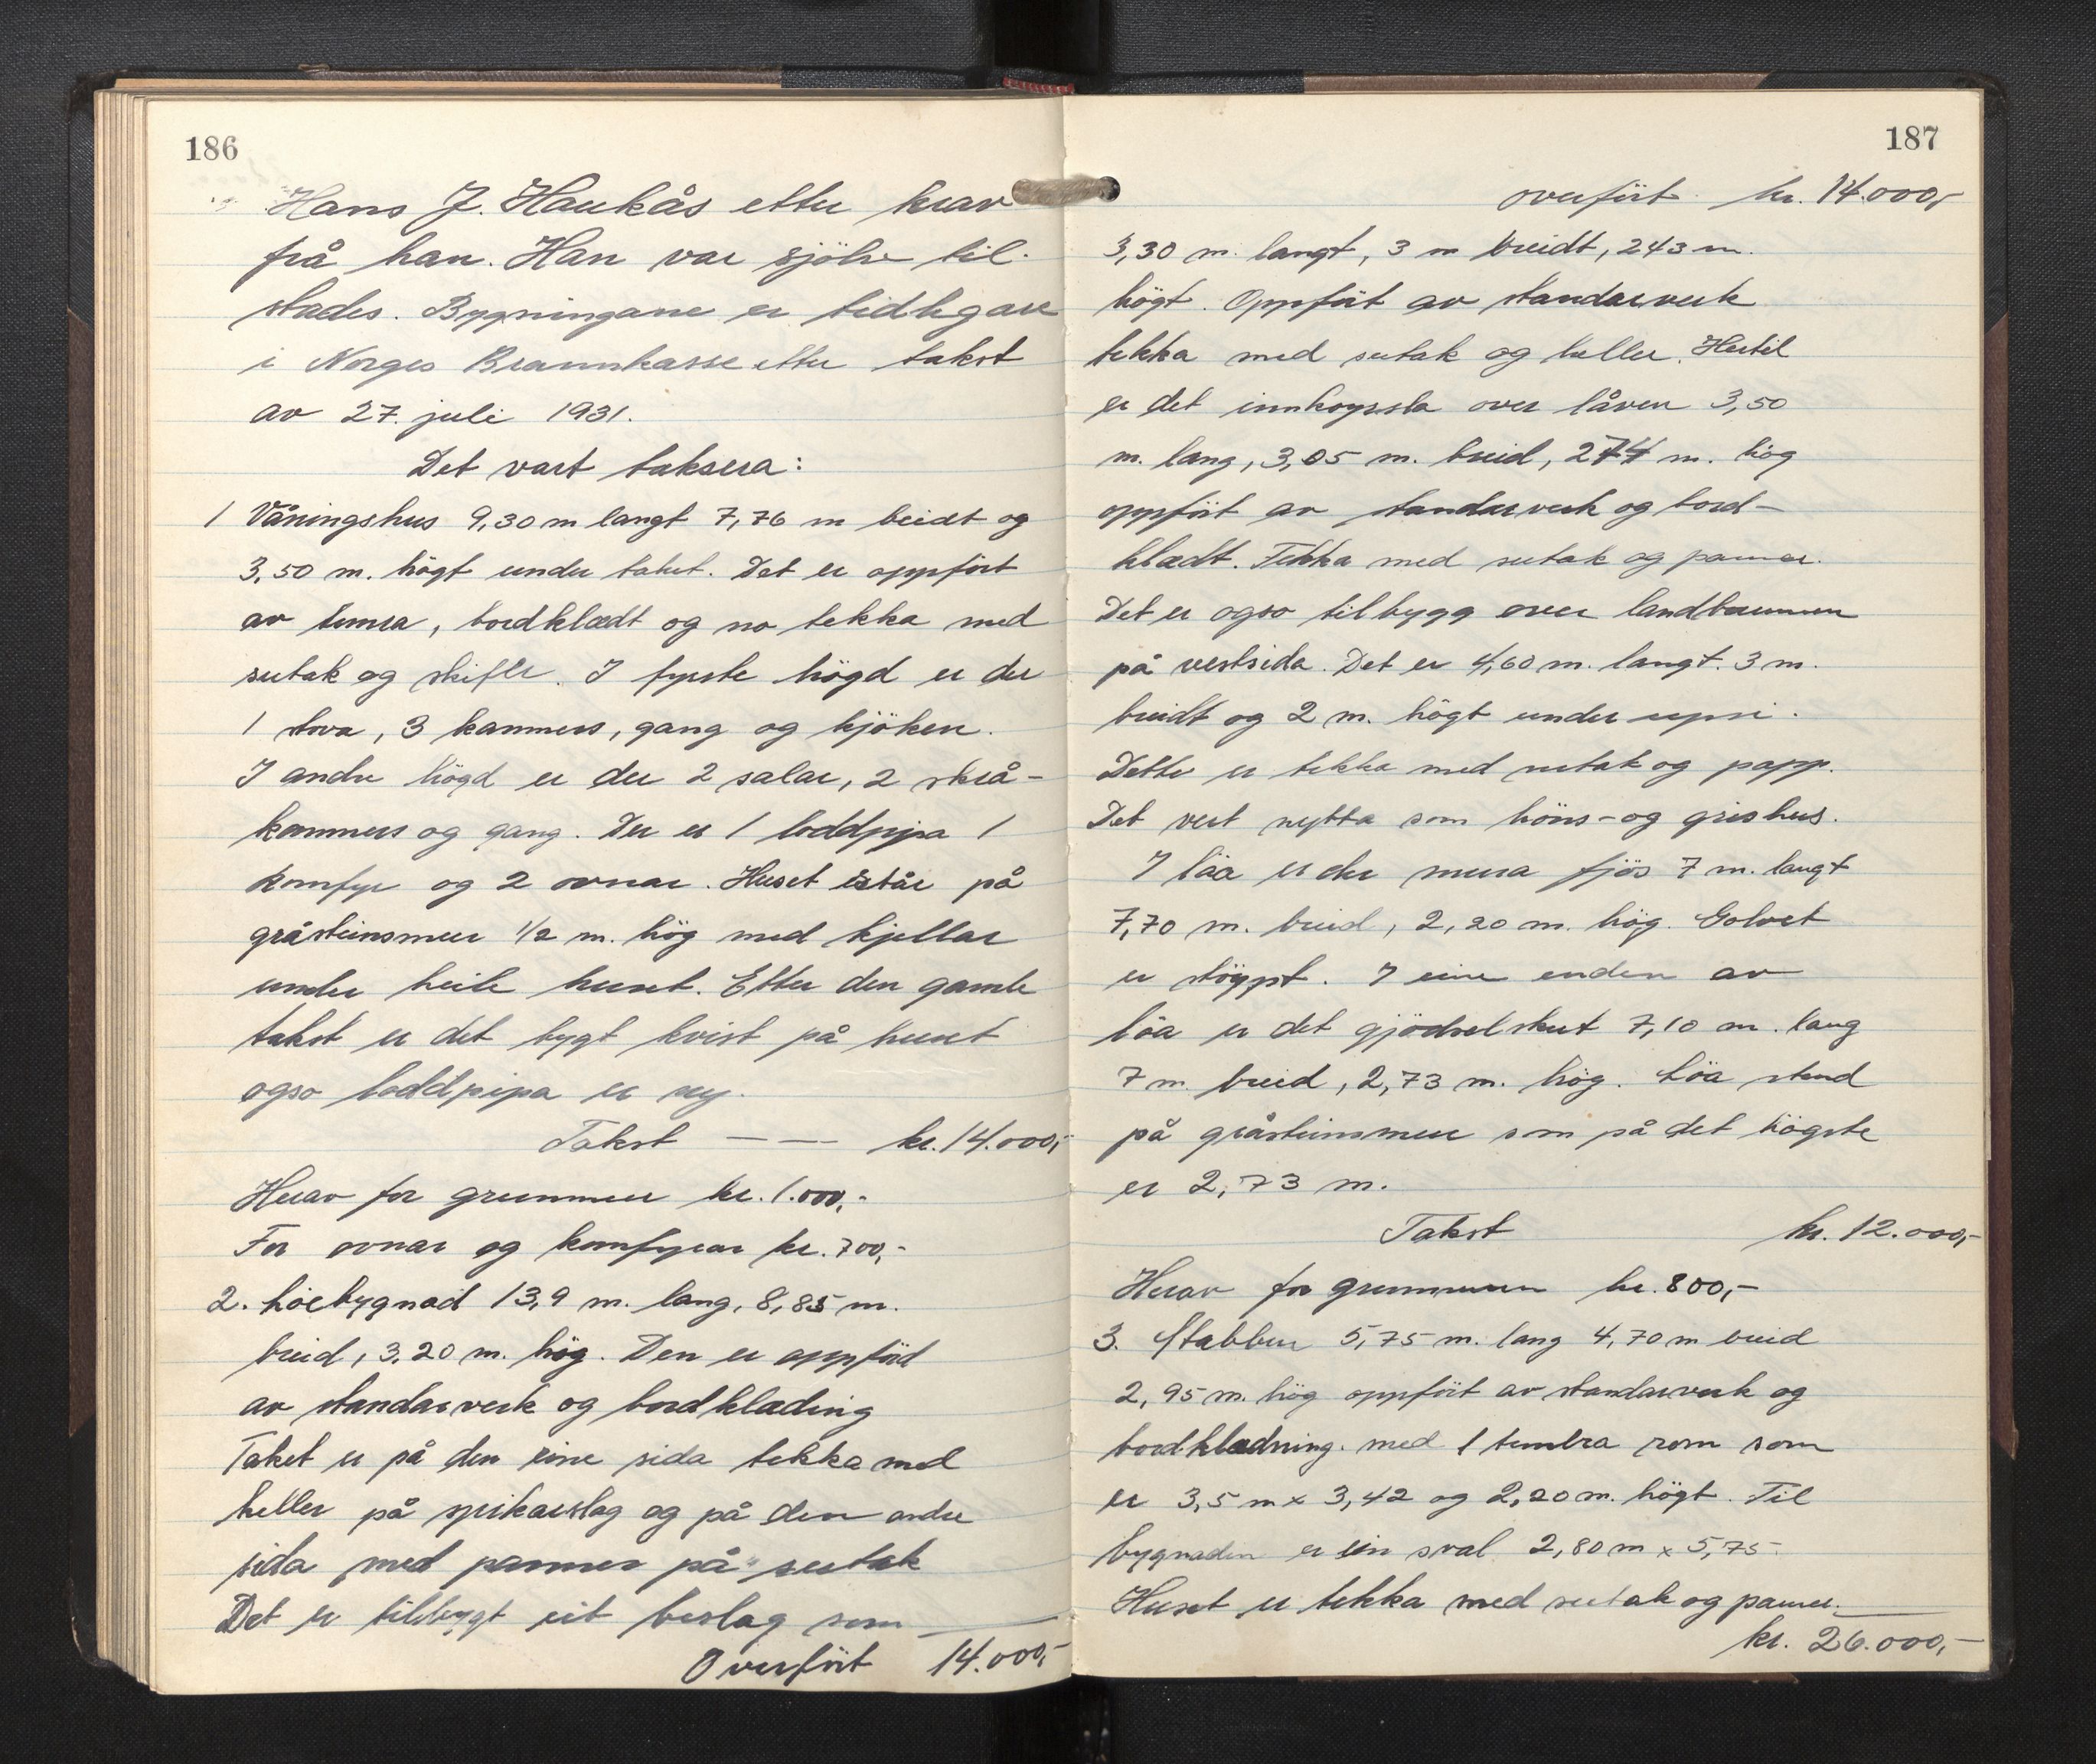 186
Hans J. Haukås etter krav
frå han. Han var sjölv til-
stades. Bygningane er tidlegare
i Norges Brannkasse etter takst
av 27. juli 1931.
Det vart taksera:
1 Våningshus 9,30 m langt 7,76 m breidt og
3,50 m. högt under taket. Det er oppfört
av tømra, bordklædt og no tekka med
sutak og skifer. I fyrste högd er der
1 stova, 3 kammers, gang og kjöken.
I andre högd er der 2 salar, 2 skrå-
kammers og gang. Der er 1 loddpipa 1
komfyr og 2 ovnar. Huset står på
gråsteinsmur 1/2 m. hög med kjellar
under heile huset. Etter den gamle
takst er det bygt kvist på huset
ogso loddpipa er ny.
Takst — — kr. 14.000,-
Herav for grunnmur kr. 1.000,-
For ovnar og komfyrar kr. 700,-
2. Löebygnad 13,9 m. lang, 8,85 m.
breid, 3,20 m. hög. Den er oppförd
av standarverk og bordklæding
Taket er på den eine sida tekka med
heller på spikarslag og på den andre
sida med panner på sutak
Det er tilbygt eit beslag som
Overfört 14.000,-
187
overfört kr. 14.000,-
3,30 m. langt, 3 m breidt, 243 m.
högt. Oppfört av standarverk
tekka med sutak og heller. Hertil
er det innkøyrsla over låven 3,50
m. lang, 3,05 m. breid, 274 m. hög
oppfört av standarverk og bord-
klædt. Tekka med sutak og panner.
Det er ogso tilbygg over landbrunnen
på vestsida. Det er 4,60 m. langt. 3 m.
breidt og 2 m. högt under upsi.
Dette er tekka med sutak og papp.
Det vert nytta som höns- og grishus.
I löa er der mura fjös 7 m. langt
7,70 m. breid, 2,20 m. hög. Golvet
er stöypt. I eine enden av
löa er det gjödselskut 7,10 m. lang
7 m. breid, 2,73 m. hög. Löa stend
på gråsteinsmur som på det högste
er 2,73 m.
Takst kr. 12.000,-
Herav for grunnmuren kr. 800,-
3. Stabbur 5,75 m. lang 4,70 m breid
2,95 m. hög oppfört av standarverk og
bordklædning. med 1 tømbra rom som
er 3,5 m x 3,42 og 2,20 m. högt. Til
bygnaden er ein sval 2,80 m x 5,75-
Huset er tekka med sutak og panner.
kr. 26.000,-